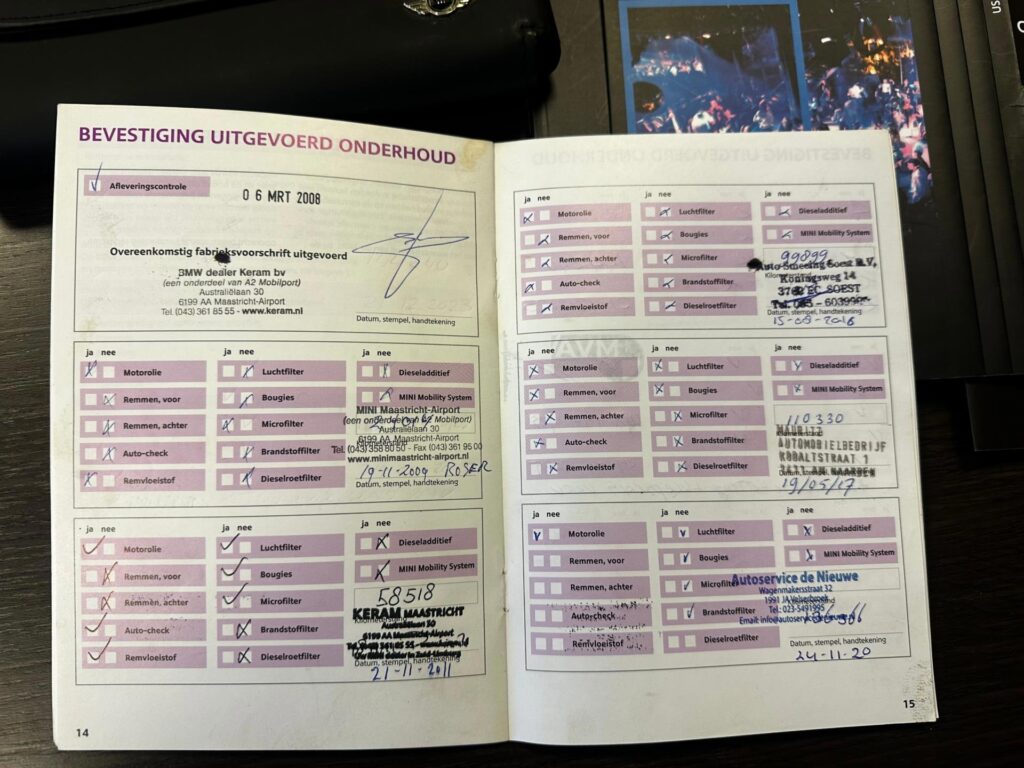 BEVESTIGING UITGEVOERD ONDERHOUD
Afleveringscontrole
06 MRT 2008
Overeenkomstig fabrieksvoorschrift uitgevoerd
BMW dealer Keram bv
(een onderdeel van A2 Mobilport)
Australiëlaan 30
6199 AA Maastricht-Airport
Tel. (043) 361 85 55 - www.keram.nl
Datum, stempel, handtekening
ja nee
ja nee
ja nee
Motorolie
Luchtfilter
Dieseladditief
Remmen, voor
Bougies
MINI Mobility System
Remmen, achter
Microfilter
Auto-check
Brandstoffilter
Remvloeistof
Dieselroetfilter
MINI Maastricht-Airport
(een onderdeel van A2 Mobilport)
Australiëlaan 30
6199 AA Maastricht-Airport
Tel. (043) 358 80 50 - Fax (043) 361 95 00
www.minimaastricht-airport.nl
19-11-2009 ROSER
Datum, stempel, handtekening
ja nee
ja nee
ja nee
Motorolie
Luchtfilter
Dieseladditief
Remmen, voor
Bougies
MINI Mobility System
Remmen, achter
Microfilter
Auto-check
Brandstoffilter
Remvloeistof
Dieselroetfilter
58518
KERAM MAASTRICHT
Australiëlaan 30
6199 AA Maastricht-Airport
Datum, stempel, handtekening
21-11-2011
14
ja nee
ja nee
ja nee
Motorolie
Luchtfilter
Dieseladditief
Remmen, voor
Bougies
MINI Mobility System
Remmen, achter
Microfilter
Auto-check
Brandstoffilter
Remvloeistof
Dieselroetfilter
99899
Auto Smeeing Soest B.V.
Koningsweg 14
3762 EC SOEST
Datum, stempel, handtekening
ja nee
ja nee
ja nee
Motorolie
Luchtfilter
Dieseladditief
Remmen, voor
Bougies
MINI Mobility System
Remmen, achter
Microfilter
Auto-check
Brandstoffilter
Remvloeistof
Dieselroetfilter
110330
MAURITZ
AUTOMOBIELBEDRIJF
KOBALTSTRAAT 1
19/05/17
ja nee
ja nee
ja nee
Motorolie
Luchtfilter
Dieseladditief
Remmen, voor
Bougies
MINI Mobility System
Remmen, achter
Microfilter
Auto-check
Brandstoffilter
Remvloeistof
Dieselroetfilter
Autoservice de Nieuwe
Wagenmakersstraat 32
1991 JA Velserbroek
Tel.: 023-5491995
Datum, stempel, handtekening
24-11-20
15